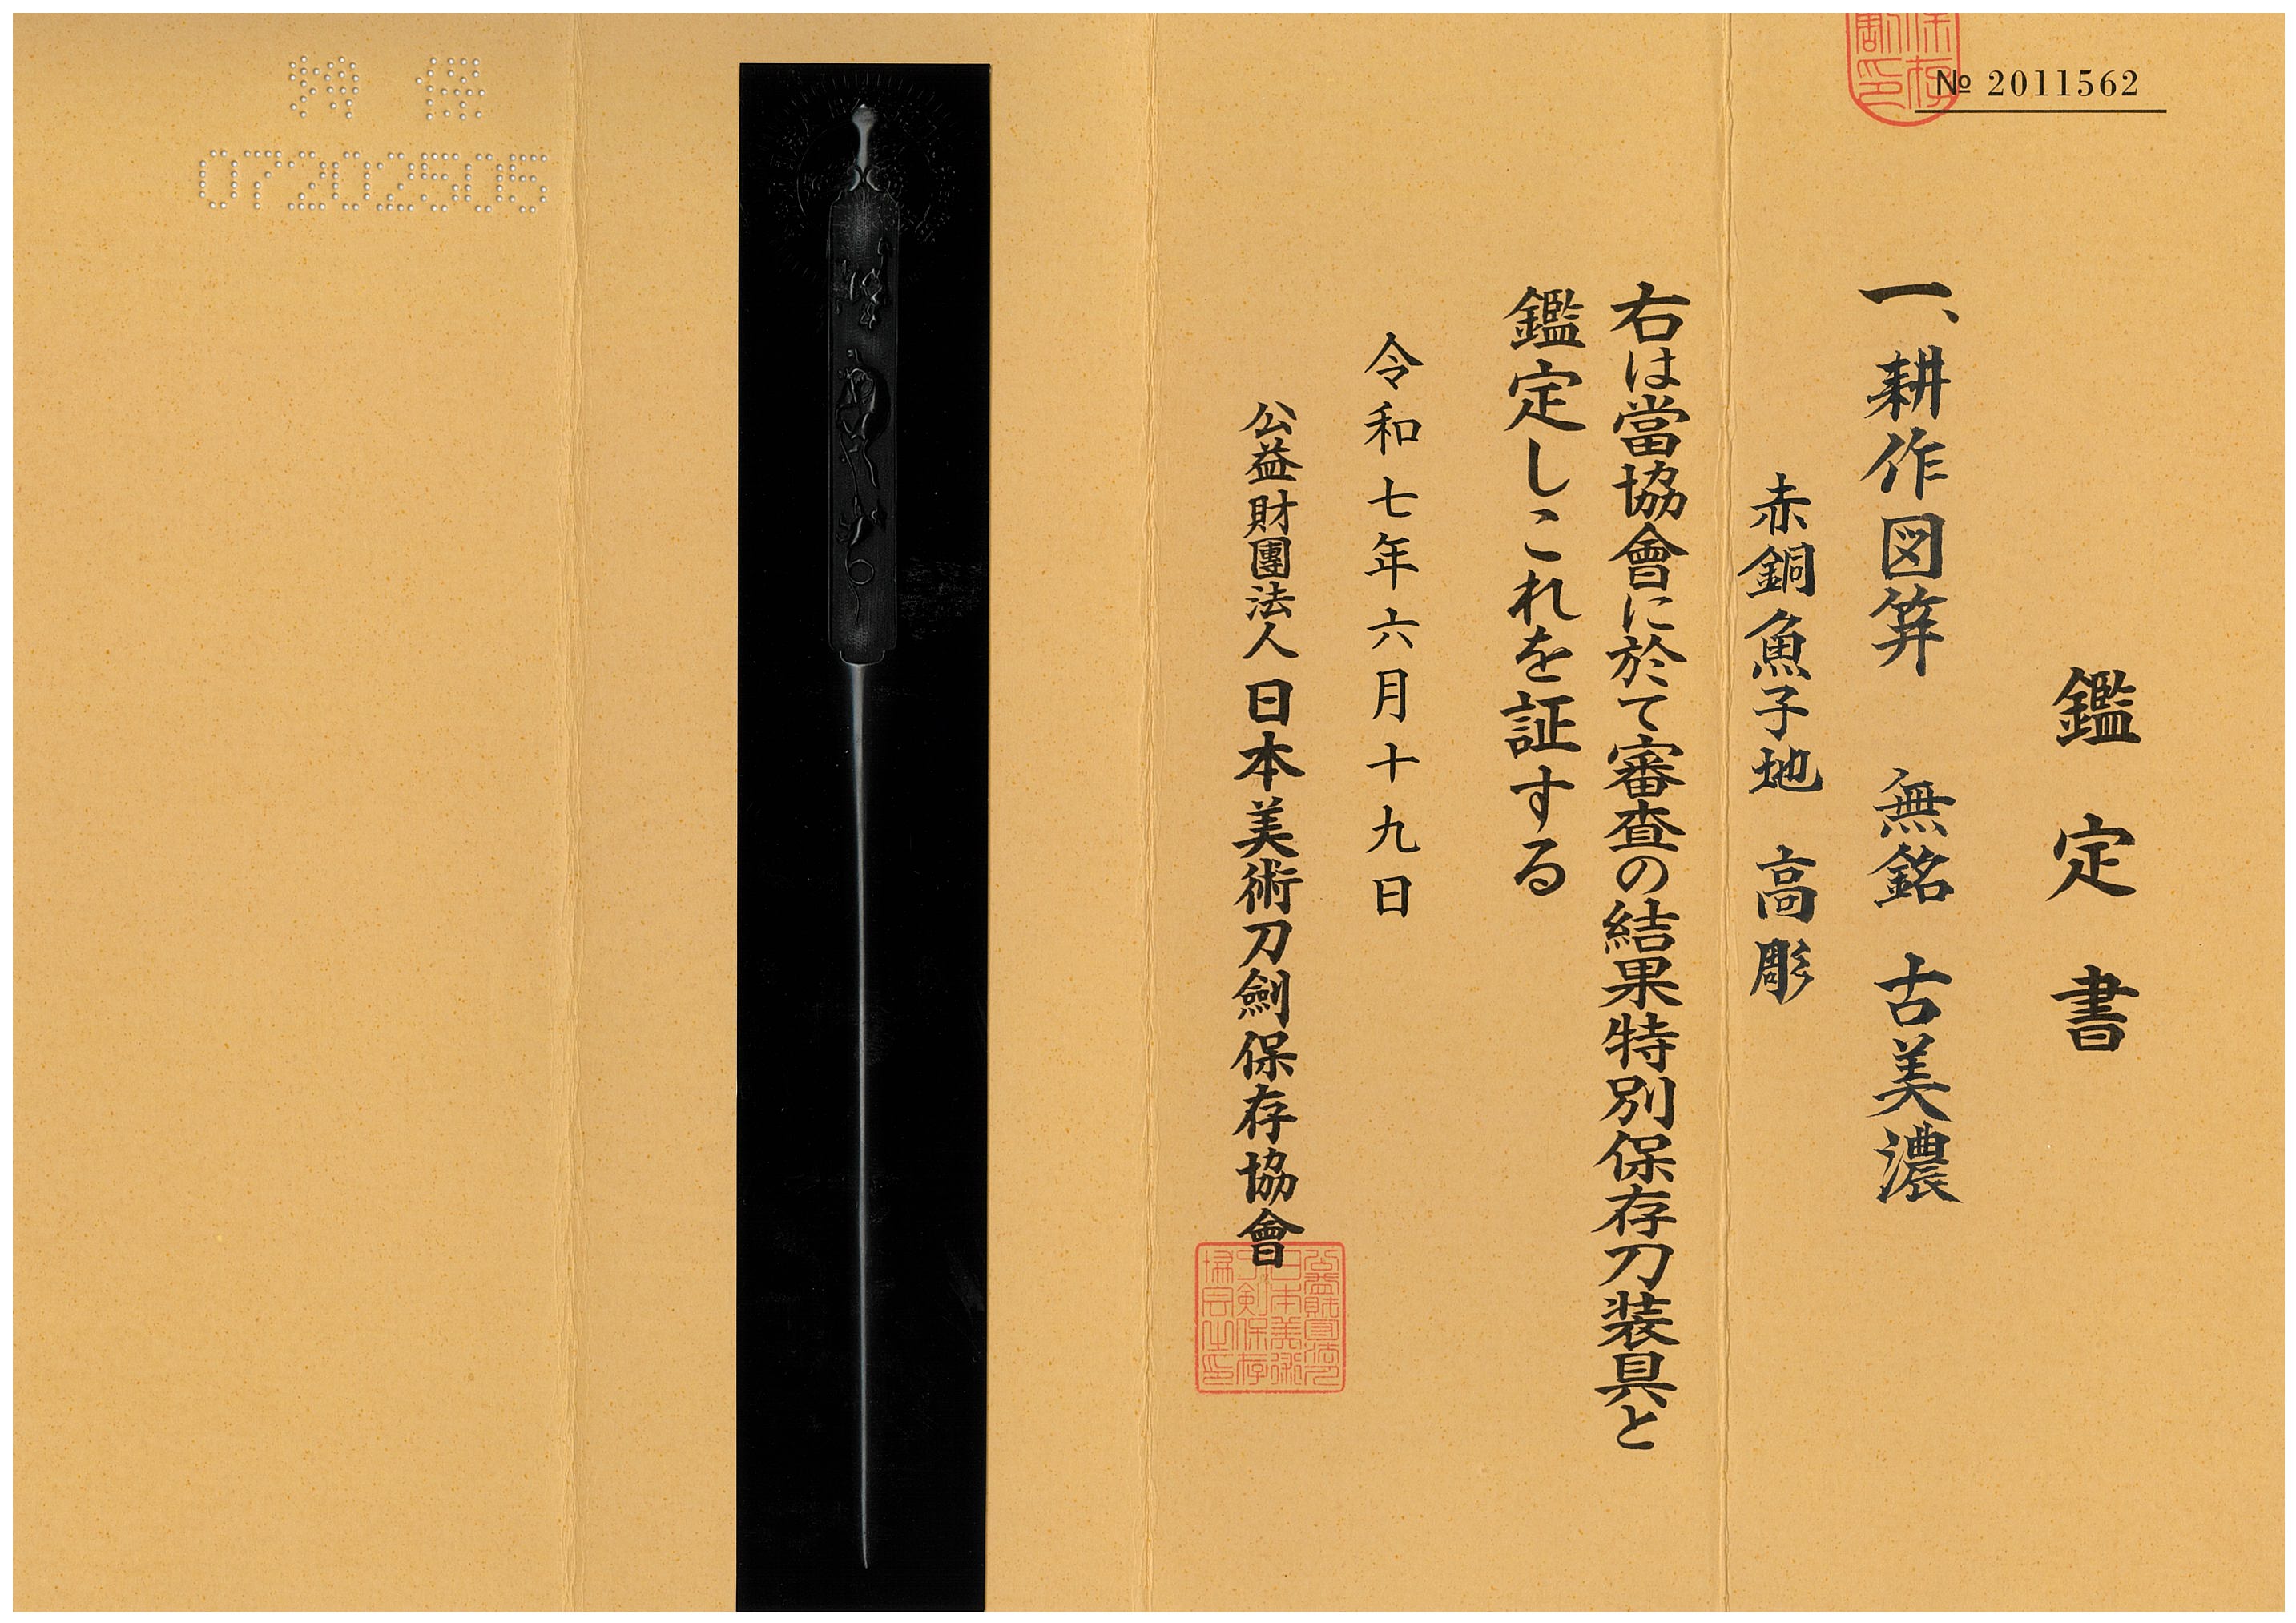 № 2011562
鑑定書
一、耕作図笄 無銘 古美濃
赤銅魚子地 高彫
右は當協會に於て審査の結果特別保存刀装具と
鑑定しこれを証する
令和七年六月十九日
公益財團法人 日本美術刀劍保存協會
07202505